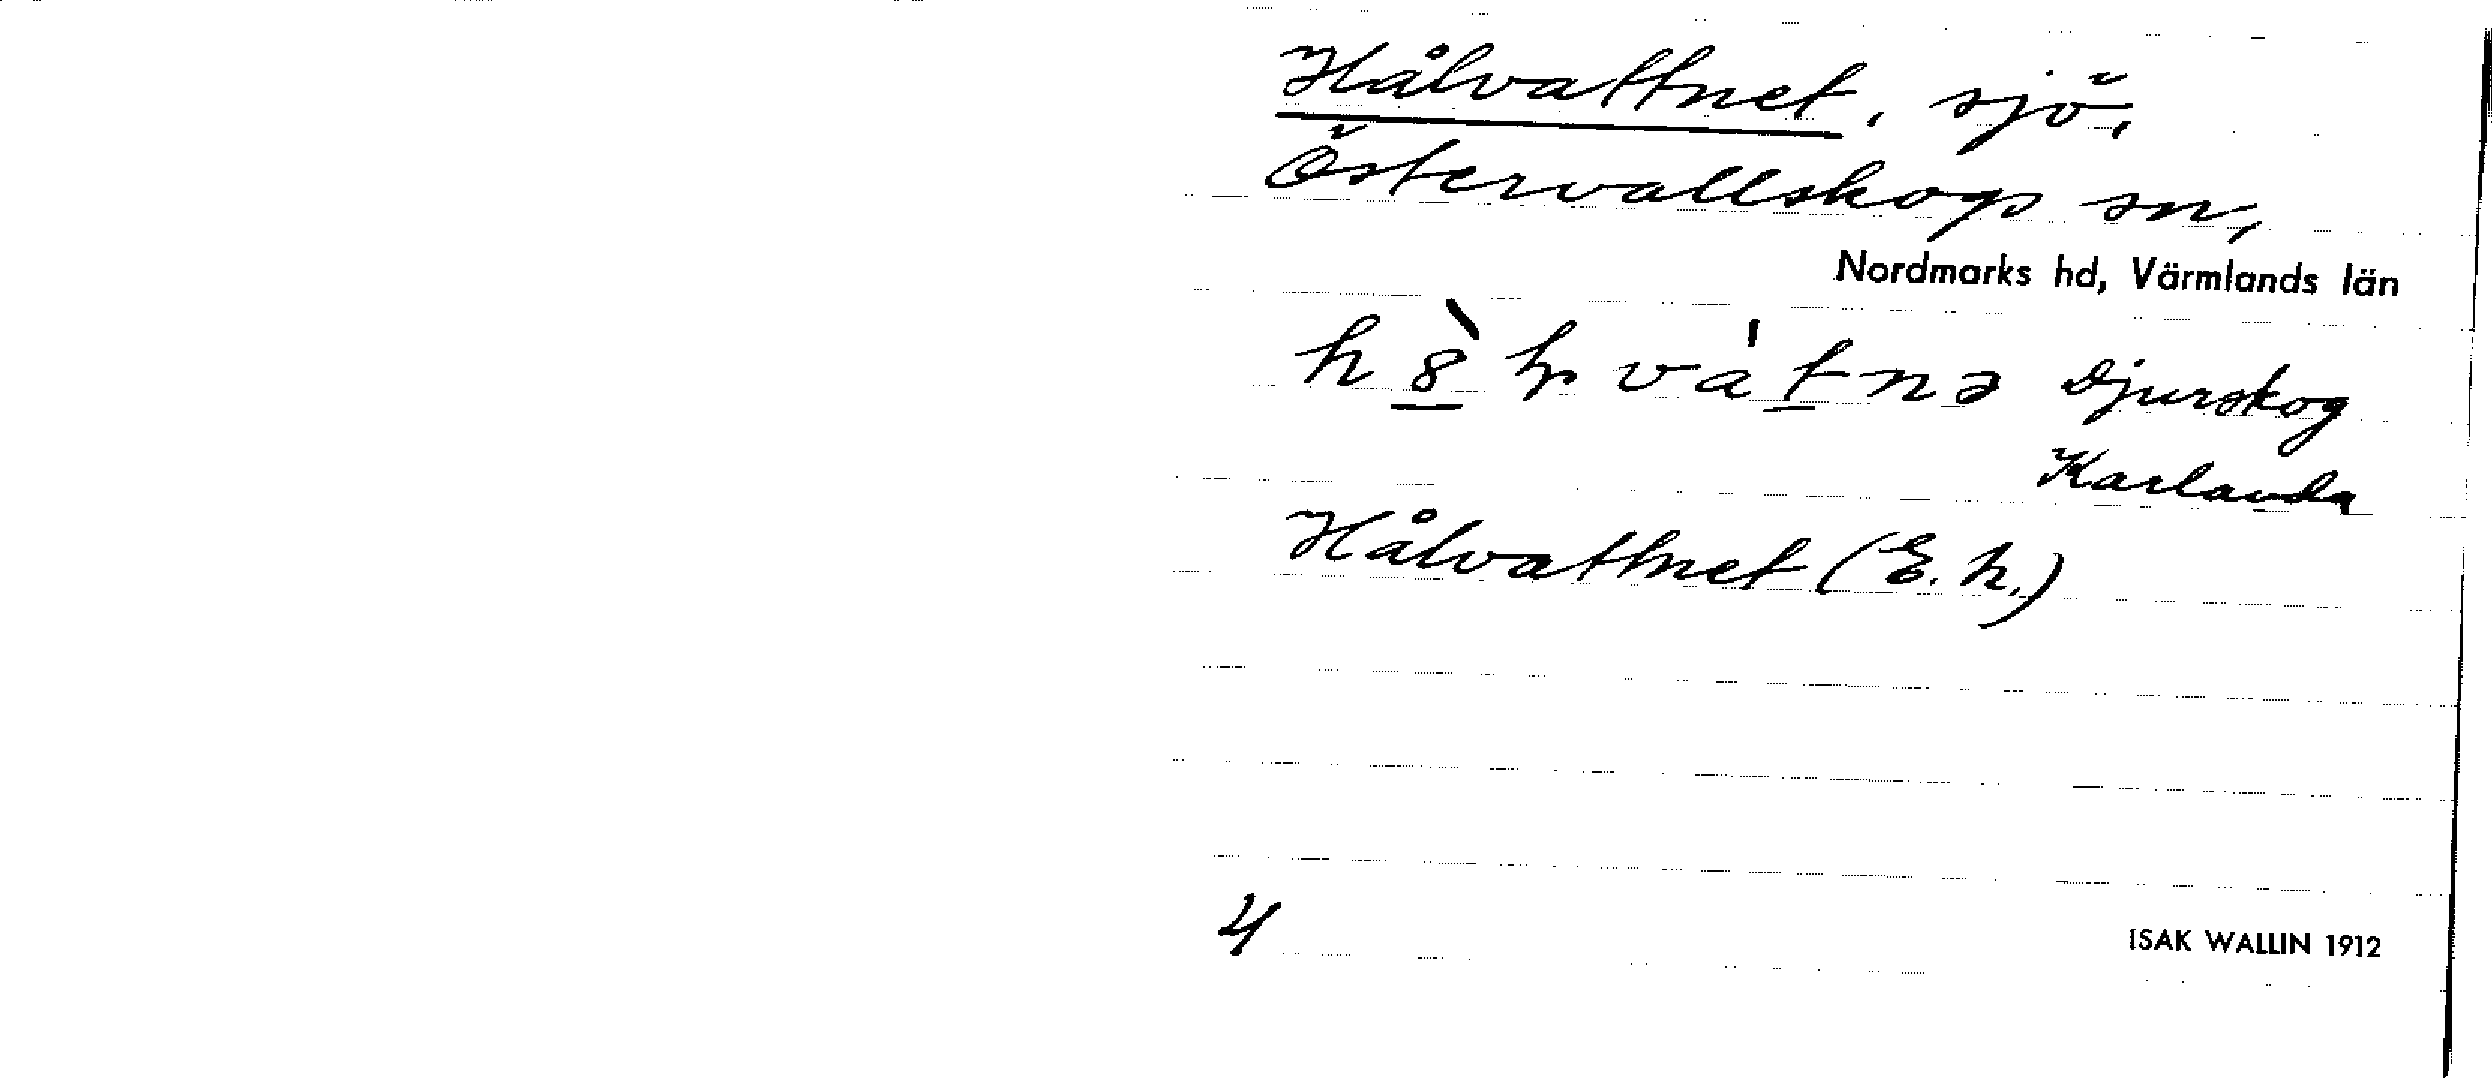 Hålvattnet, sjö,
Östervallskogs sn,
Nordmarks hd, Värmlands län
Djurskog
Karlanda
Hålvattnet (E. h.)
4
ISAK WALLIN 1912